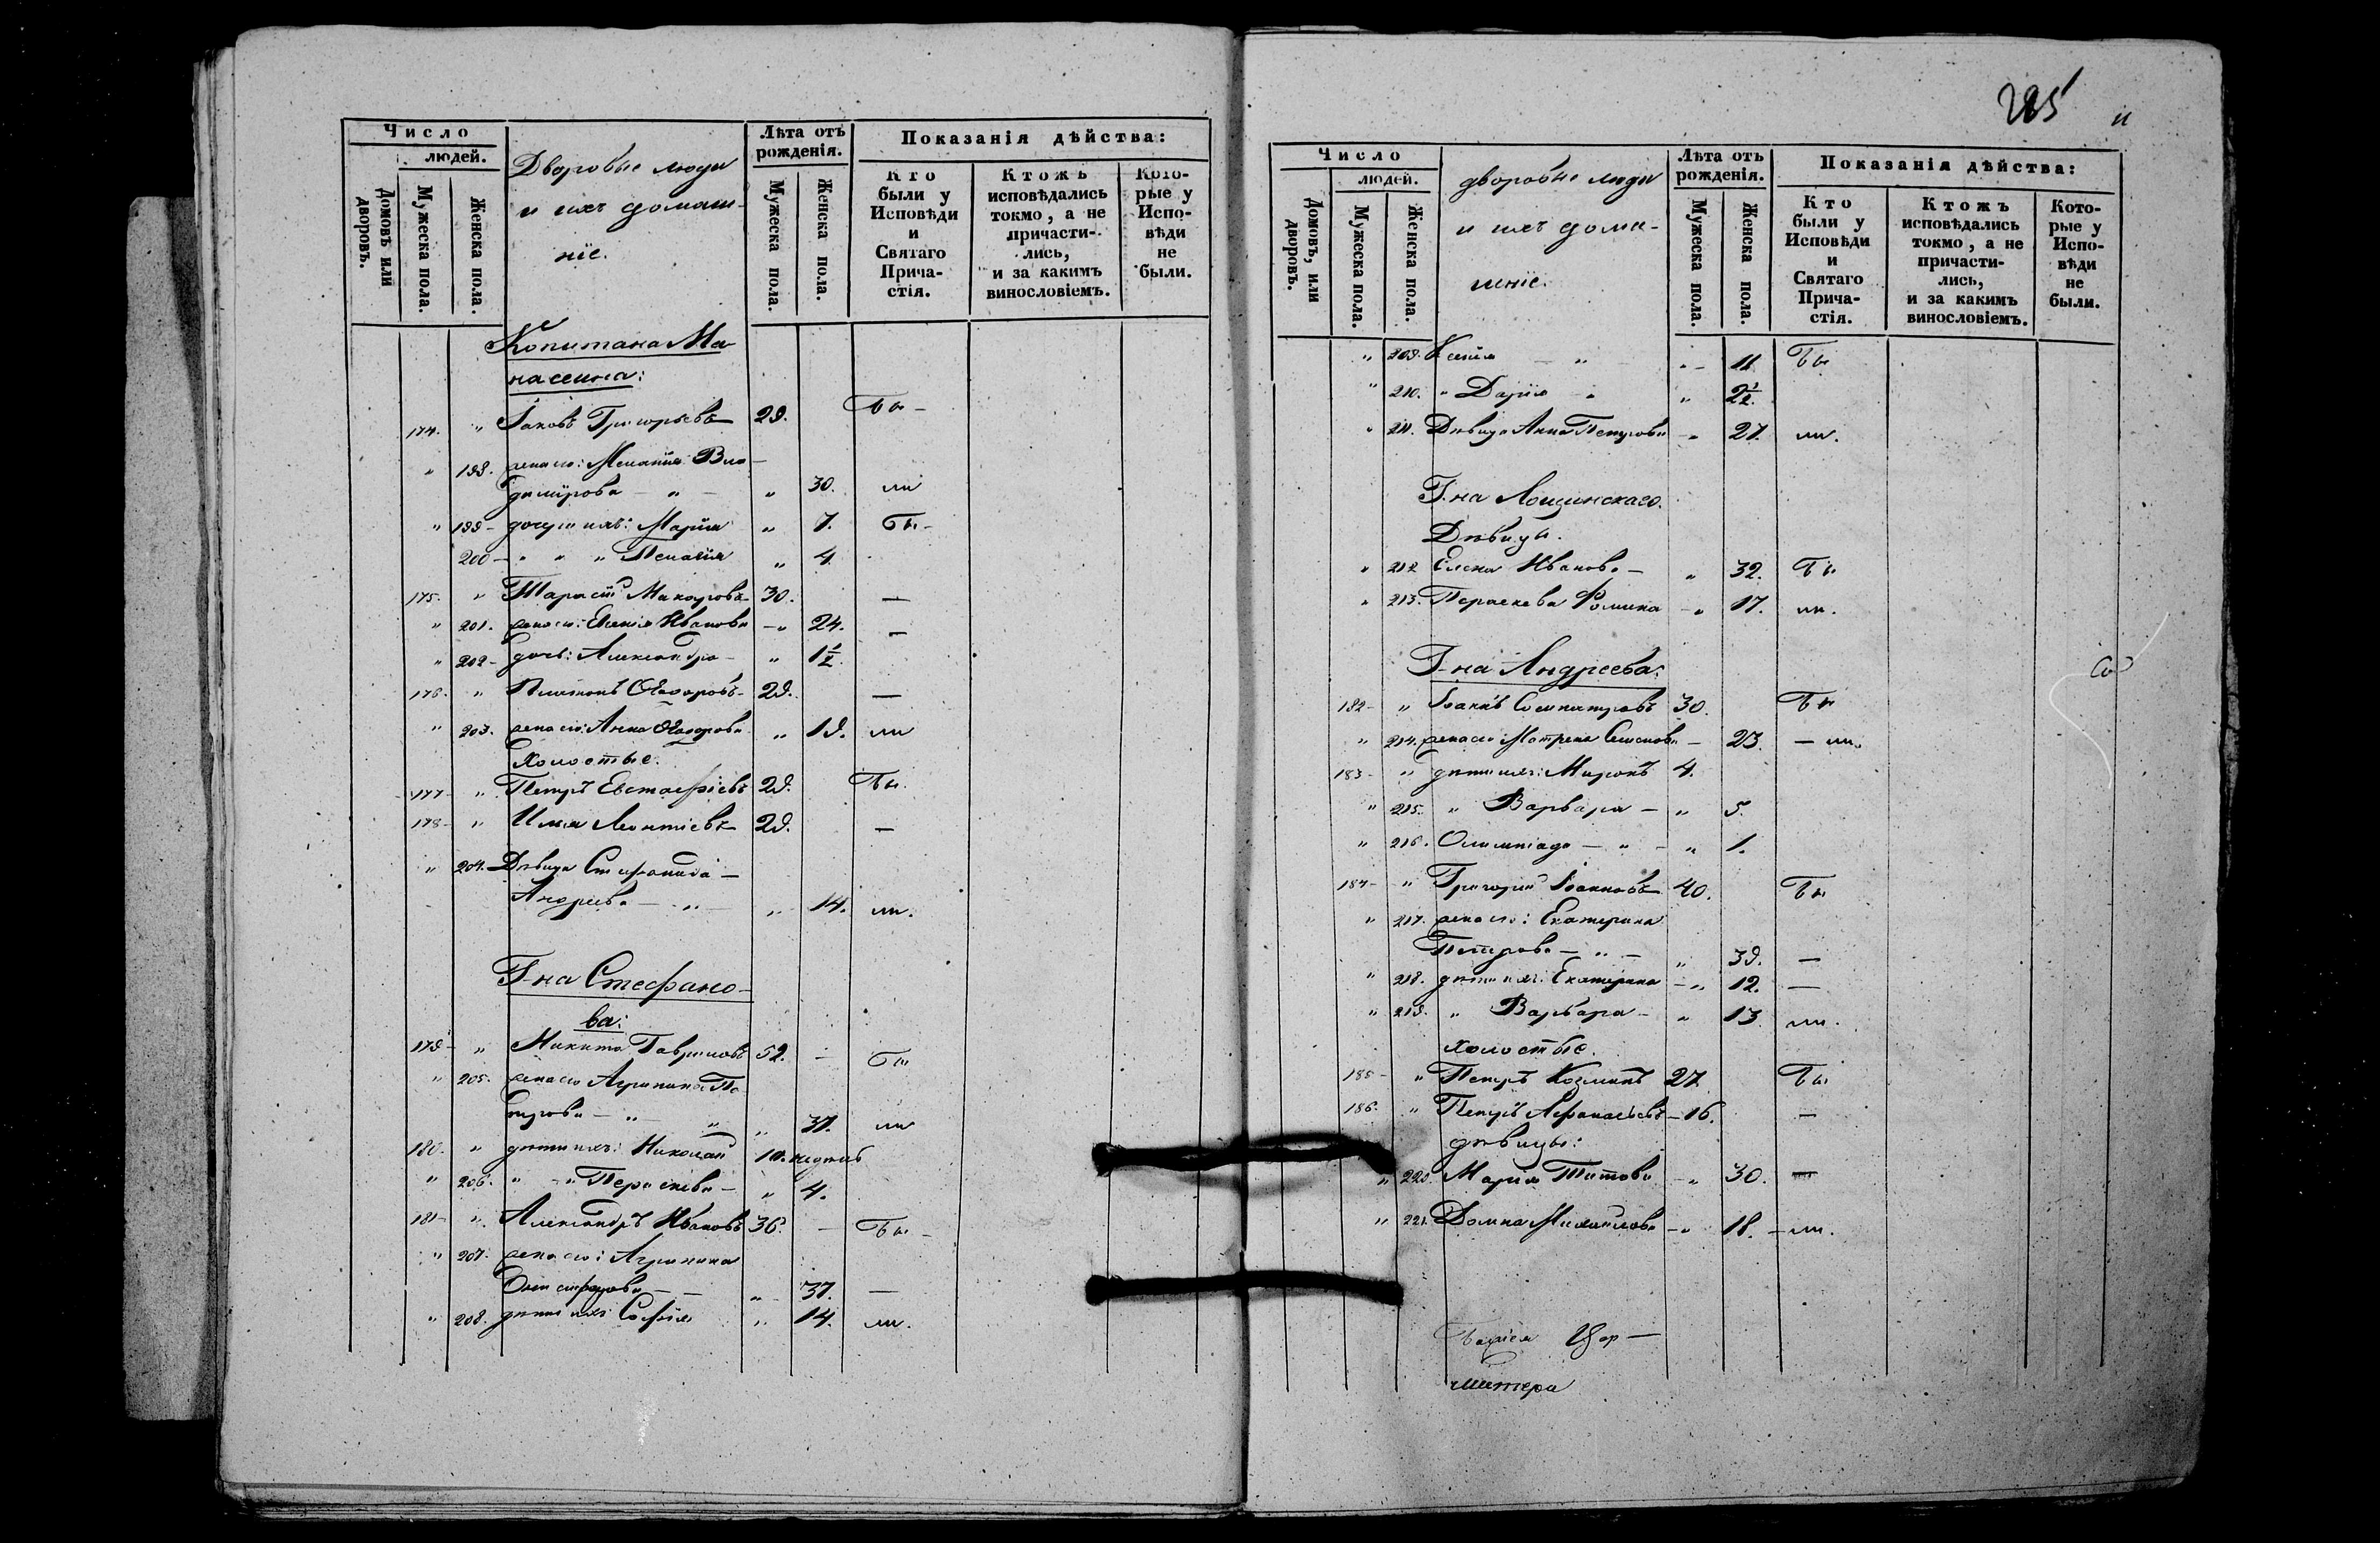 Число
людей.
Домовъ или дворовъ.
Мужеска пола.
Женска пола.
Дворовые люди
и ихъ домаш-
ніе.
Лѣта отъ рожденія.
Мужеска пола.
Женска пола.
Показанія дѣйства:
Кто были у Исповѣди и Святаго Прича- стія.
Ктожъ исповѣдались токмо, а не причасти- лись, и за какимъ винословіемъ.
Кото- рые у Испо- вѣди не были.
Капитана Ма-
насеина:
174. " Іаковъ Григорьевъ 29. Бы -
" 198. жена его: Меланія Вла-
димірова - " - " 30. ли
" 199 - дочери ихъ: Марія " 7. Бы -
200 - " " " Пелагія " 4.
175. " Тарасій Макаровъ 30. —
" 201. жена его: Евгенія Иванова - " 24. —
" 202 - дочь: Александра - " 1½.
176. " Платонъ Ѳеодоровъ - 29. —
" 203. жена его: Анна Ѳеодорова " 19. ли
Холостые.
177 - " Петръ Евстафіевъ 29. Бы.
178 - " Илія Леонтіевъ 29. —
" 204. Дѣвица Стефанида -
Андреева - " - " 14. ли.
Г-на Стефано-
ва:
179 - " Никита Гавриловъ 52. - Бы
" 205. жена его Агрипина Пе
трова - " - " " 37. ли
180. " дѣти ихъ: Николай 10.
" 206. " - " Параскева - " 4.
181 - " Александръ Ивановъ 36. - Бы -
" 207. жена его: Агрипина
" 37. —
" 208. дѣти ихъ: Софія " 14. ли.
285
Число
людей.
Домовъ, или дворовъ.
Мужеска пола.
Женска пола.
дворовые люди
и ихъ дома-
шніе.
Лѣта отъ рожденія.
Мужеска пола.
Женска пола.
Показанія дѣйства:
Кто были у Исповѣди и Святаго Прича- стія.
Ктожъ исповѣдались токмо, а не причасти- лись, и за какимъ винословіемъ.
Кото- рые у Испо- вѣди не были.
" 209. Ксенія - " " - 11 Бы
" 210. " Дарія " " 2½.
" 211. Дѣвица Анна Петрова - " 27. ли.
Г-на Лощинскаго.
Дѣвицы.
" 212 Елена Иванова - " 32. Бы
" 213. Параскева Фомина - " 17. ли.
Г-на Андреева:
182 - " Іоаннъ Сосипатровъ 30. Бы
" 214. жена его Матрена Семенова - 23. - ли.
183 - " дѣти ихъ: Миронъ 4.
" 215. " Варвара - " 5.
" 216. Олимпіада - " - " 1.
184 - " Григорій Іоанновъ 40. Бы
" 217. жена его: Екатерина
Петрова - " - " 39. —
" 218. дѣти ихъ: Екатерина - " 12. —
" 219. " Варвара - " 13 ли.
холостые.
185 - " Петръ Козминъ 27 Бы
186. " Петръ Афанасьевъ - 16. —
дѣвицы:
" 220. Марія Титова - " 30. —
" 221. Домна Михайлова - " 18. - ли.